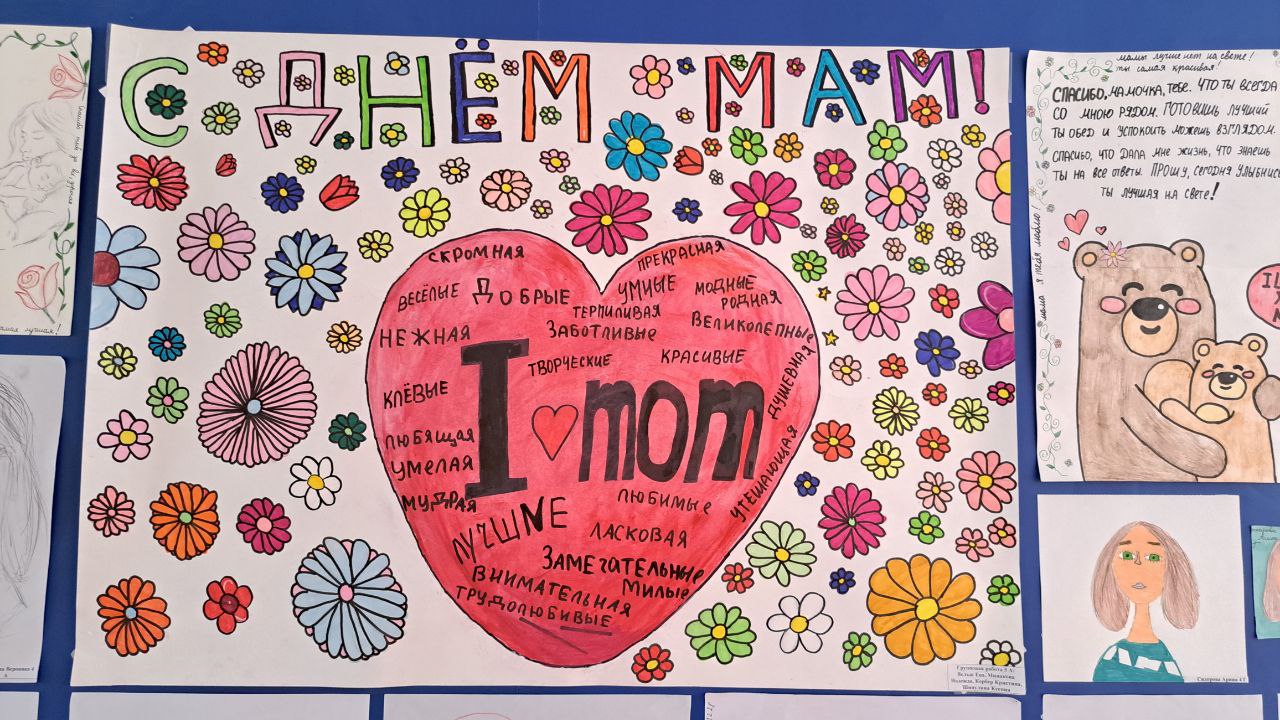 С ДНЁМ МАМ!
СКРОМНАЯ
ПРЕКРАСНАЯ
ВЕСЁЛЫЕ
ДОБРЫЕ
УМНЫЕ
МОДНЫЕ
РОДНАЯ
ТЕРПИЛИВАЯ
НЕЖНАЯ
ЗАБОТЛИВЫЕ
ВЕЛИКОЛЕПНЫЕ
ТВОРЧЕСКИЕ
КРАСИВЫЕ
ДУШЕВНАЯ
КЛЁВЫЕ
I mom
ЛЮБЯЩАЯ
УМЕЛАЯ
УТЕШАЮЩАЯ
МУДРАЯ
ЛЮБИМЫЕ
ЛУЧШИЕ
ЛАСКОВАЯ
ЗАМЕЧАТЕЛЬНЫЕ
ВНИМАТЕЛЬНАЯ
МИЛЫЕ
ТРУДОЛЮБИВЫЕ
Групповая работа 5 А:
мамы лучше нет на свете!
ты самая красивая!
СПАСИБО, МАМОЧКА, ТЕБЕ, ЧТО ТЫ ВСЕГДА
СО МНОЮ РЯДОМ. ГОТОВИШЬ ЛУЧШИЙ
ТЫ ОБЕД И УСПОКОИТЬ МОЖЕШЬ ВЗГЛЯДОМ.
СПАСИБО, ЧТО ДАЛА МНЕ ЖИЗНЬ, ЧТО ЗНАЕШЬ
ТЫ НА ВСЕ ОТВЕТЫ. ПРОШУ, СЕГОДНЯ УЛЫБНИСЬ
ТЫ ЛУЧШАЯ НА СВЕТЕ!
мама я тебя люблю!
лучшая!
Вероника 4
Сидорова Арина 4 Г